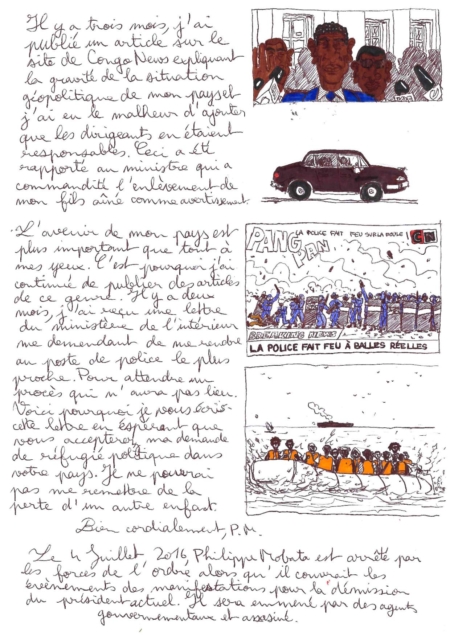 Il y a trois mois, j'ai
publié un article sur le
site de Congo News expliquant
la gravité de la situation
géopolitique de mon pays et
j'ai eu le malheur d'ajouter
que les dirigeants en étaient
responsables. Ceci a été
rapporté au ministre qui a
commandité l'enlèvement de
mon fils aîné comme avertissement.
L'avenir de mon pays est
plus important que tout à
mes yeux. C'est pourquoi j'ai
continué de publier des articles
de ce genre. Il y a deux
mois, j'ai reçu une lettre
du ministère de l'intérieur
me demandant de me rendre
au poste de police le plus
proche. Pour attendre un
procès qui n'aura pas lieu.
Voici pourquoi je vous écris
cette lettre en espérant que
vous accepterez ma demande
de réfugié politique dans
votre pays. Je ne pourrai
pas me remettre de la
perte d'un autre enfant.
Bien cordialement, P.M.
LA POLICE FAIT FEU SUR LA FOULE !
CN
PANG
PAN
BREAKING NEWS
LA POLICE FAIT FEU À BALLES RÉELLES
Le 4 Juillet 2016, Philippe Mobuta est arrêté par
les forces de l'ordre alors qu'il couvrait les
évènements des manifestations pour la démission
du président actuel. Il sera emmené par des agents
gouvernementaux et assassiné.